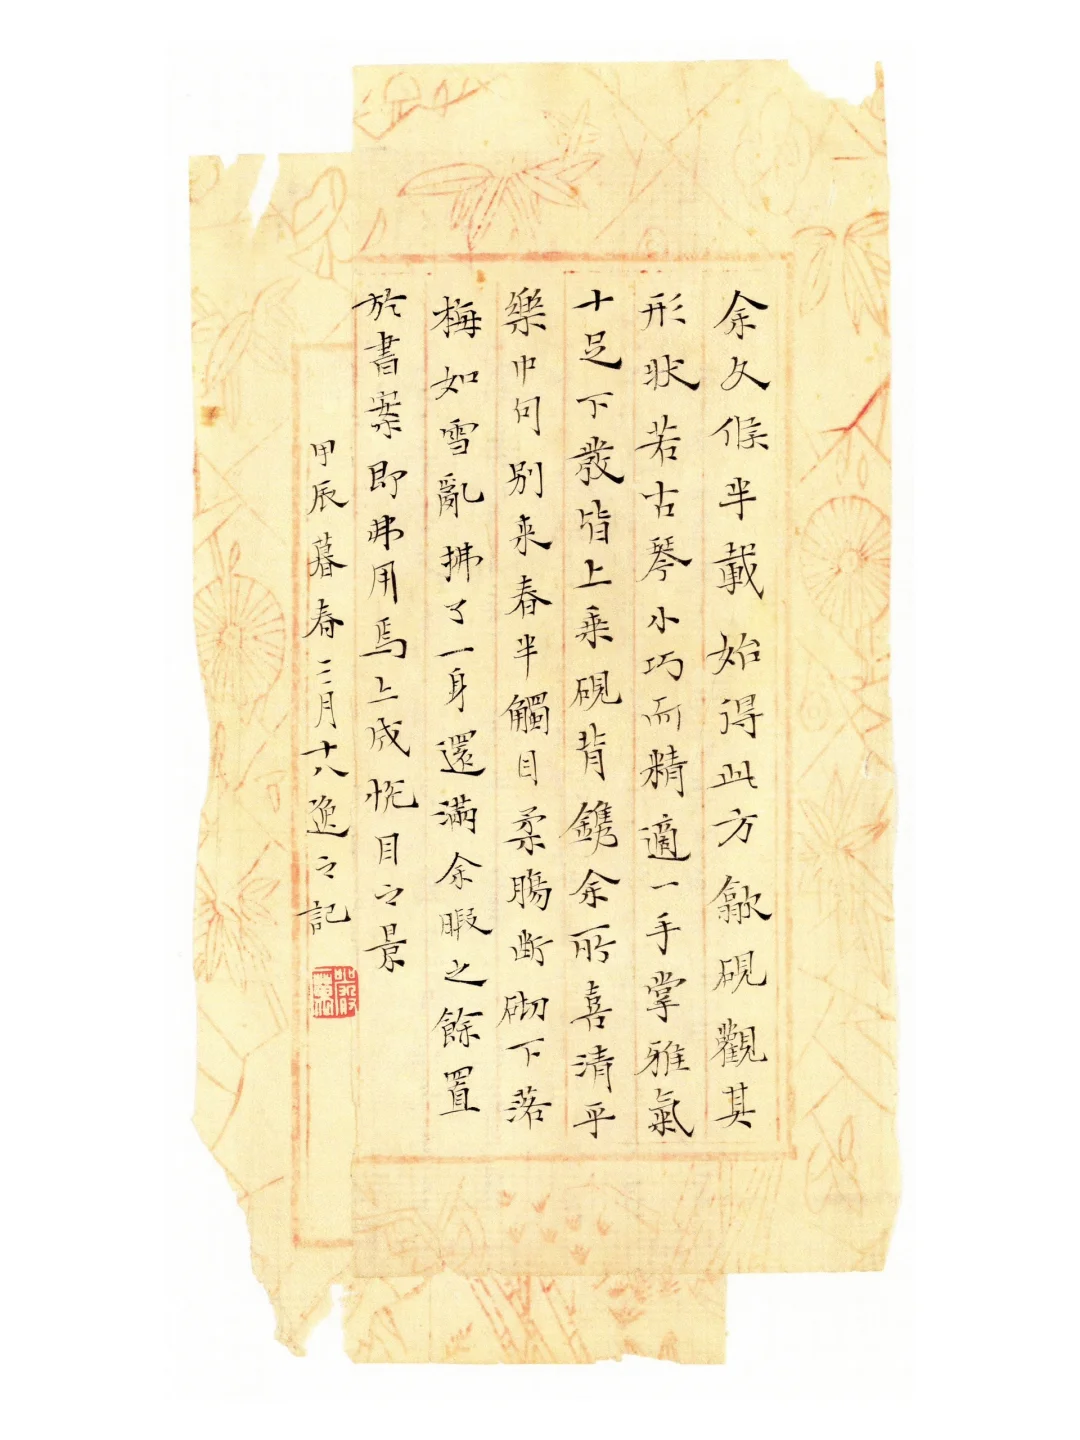 余久候半載始得此方歙硯觀其
形狀若古琴小巧而精適一手掌雅氣
十足下發皆上乘硯背鐫余所喜清平
樂中句別来春半觸目柔腸断砌下落
梅如雪亂拂了一身還滿余暇之餘置
於書案即弗用焉上成悦目之景
甲辰暮春三月十八逸之記